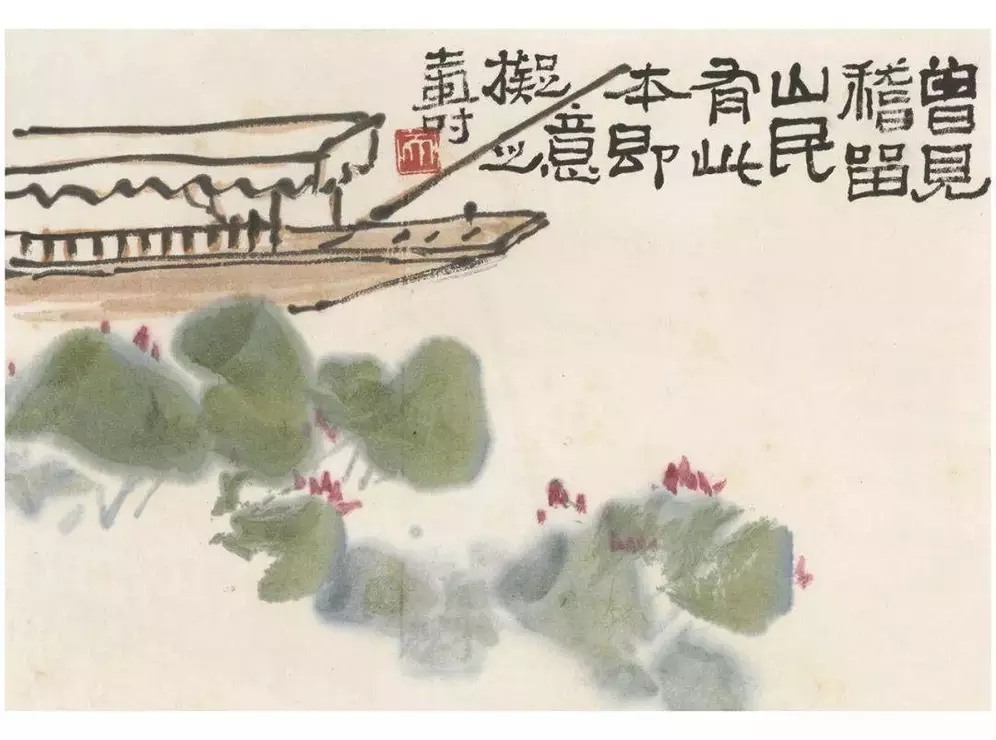 曾見
稽留
山民
有此
本即
意
擬之
壽